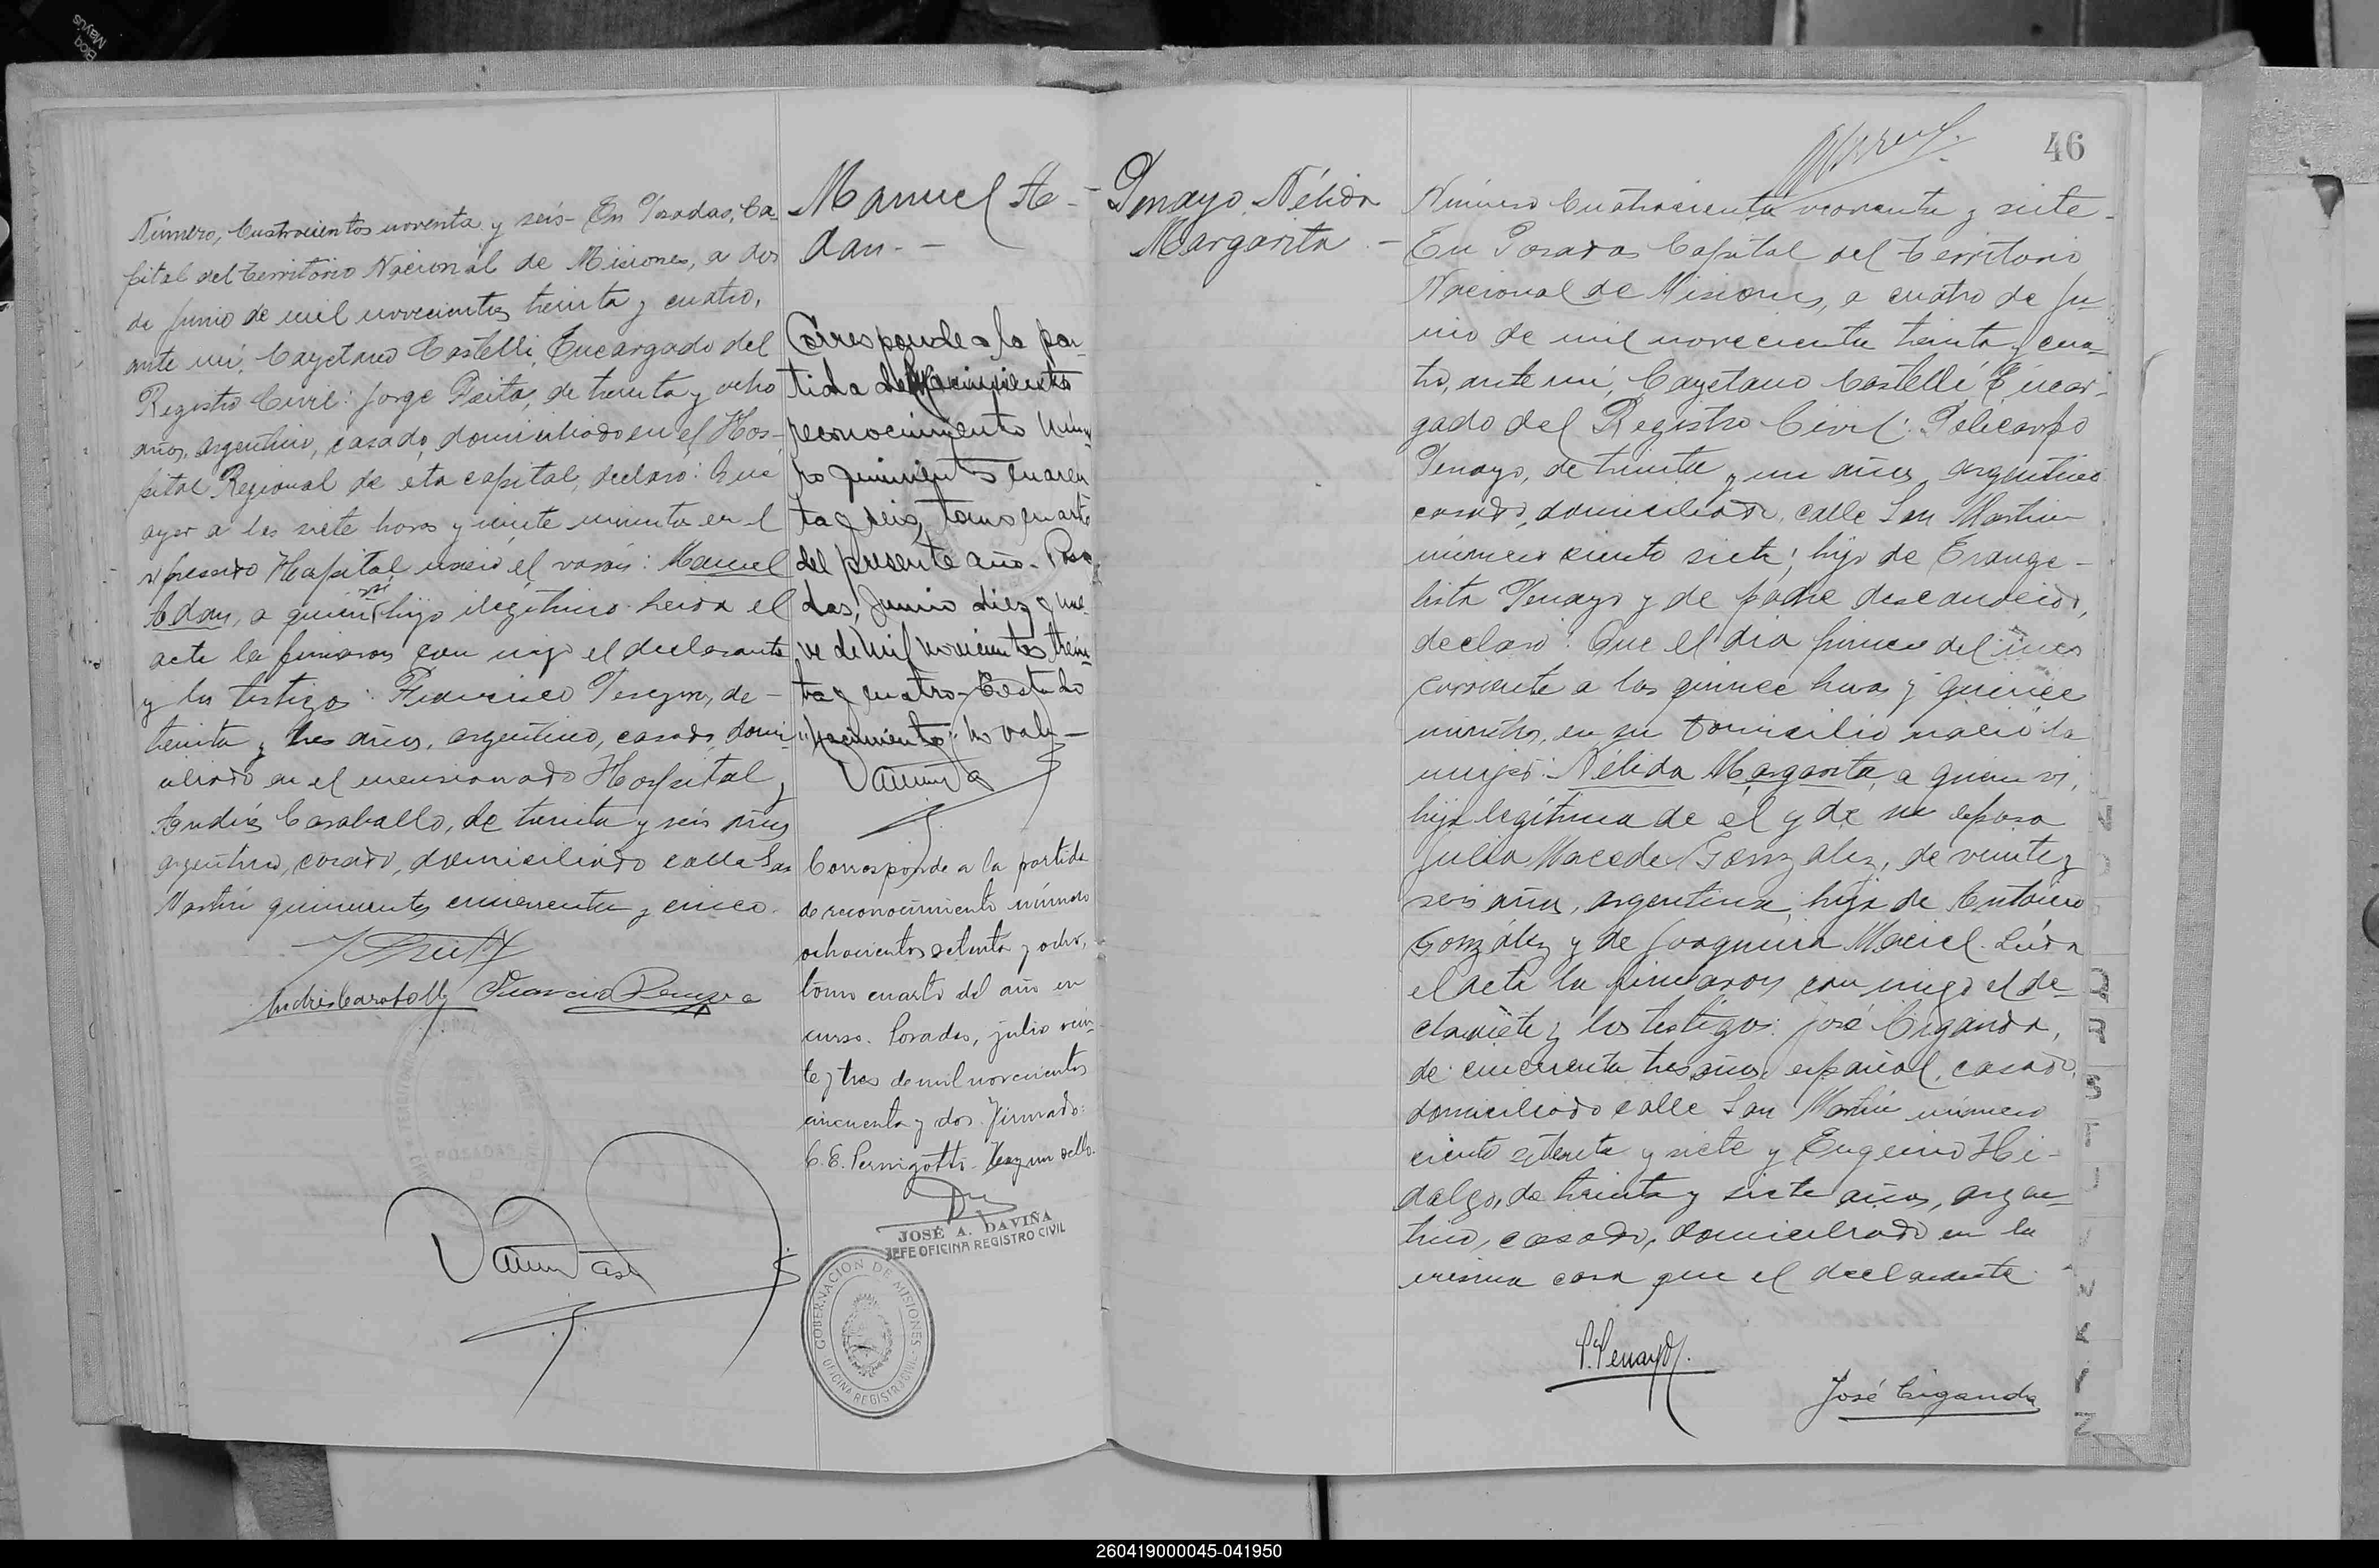 Número, Cuatrocientos noventa y seis - En Posadas, Ca-
pital del Territorio Nacional de Misiones, a dos
de Junio de mil novecientos treinta y cuatro,
ante mí, Cayetano Castelli, Encargado del
Registro Civil: Jorge Freita, de treinta y ocho
años, argentino, casado, domiciliado en el Hos-
pital Regional de esta capital, declaró: Que
ayer a las siete horas y veinte minutos en el
expresado Hospital nació el varón: Manuel
Adan, a quien ví hijo ilegítimo. Leida el
acta la firmaron con migo el declarante
y los testigos: Francisco Pereyra, de -
treinta y tres años, argentino, casado, domi-
ciliado en el mencionado Hospital y
Andrés Caraballo, de treinta y seis años
argentino, casado, domiciliado calle San
Martín quinientos cincuenta y cinco.
Andres Caraballo Francisco Pereyra
POSADAS
Manuel A-
dan. -
Corresponde a la par-
tida de Nacimiento
reconocimiento núme-
ro quinientos cuaren-
ta y seis, tomo cuarto
del presente año. Posa
das, Junio diez y nue-
ve de mil novecientos trein-
ta y cuatro - Testado
"Nacimiento" no vale -
Corresponde a la partida
de reconocimiento número
ochocientos setenta y ocho,
tomo cuarto del año en
curso. Posadas, julio vein-
te y tres de mil novecientos
cincuenta y dos. Firmado:
C. E. Pernigotti. Hay un sello.
JOSÉ A. DAVIÑA
JEFE OFICINA REGISTRO CIVIL
GOBERNACION DE MISIONES
OFICINA REGISTRO CIVIL
Penayo Nélida
Margarita. -
46
Número Cuatrocientos noventa y siete -
En Posadas Capital del Territorio
Nacional de Misiones, a cuatro de Ju-
nio de mil novecientos treinta y cua-
tro, ante mí, Cayetano Castelli Encar-
gado del Registro Civil: Policarpo
Penayo, de treinta y un años, argentino
casado, domiciliado, calle San Martín
número ciento siete; hijo de Evange-
lista Penayo y de padre desconocido,
declaró: Que el día primero del mes
corriente a las quince horas y quince
minutos, en su domicilio nació la
mujer: Nélida Margarita, a quien ví,
hija legítima de él y de su esposa
Julia Macedo González, de veinte y
seis años, argentina, hija de Antonio
González y de Joaquina Maciel. Leída
el acta la firmaron con migo el de-
clarante y los testigos: José Ciganda,
de cincuenta tres años, español, casado,
domiciliado calle San Martín número
ciento setenta y siete y Eugenio Hi-
dalgo, de treinta y siete años, argen-
tino, casado, domiciliado en la
misma casa que el declarante.
P. Penayo
José Ciganda
260419000045-041950